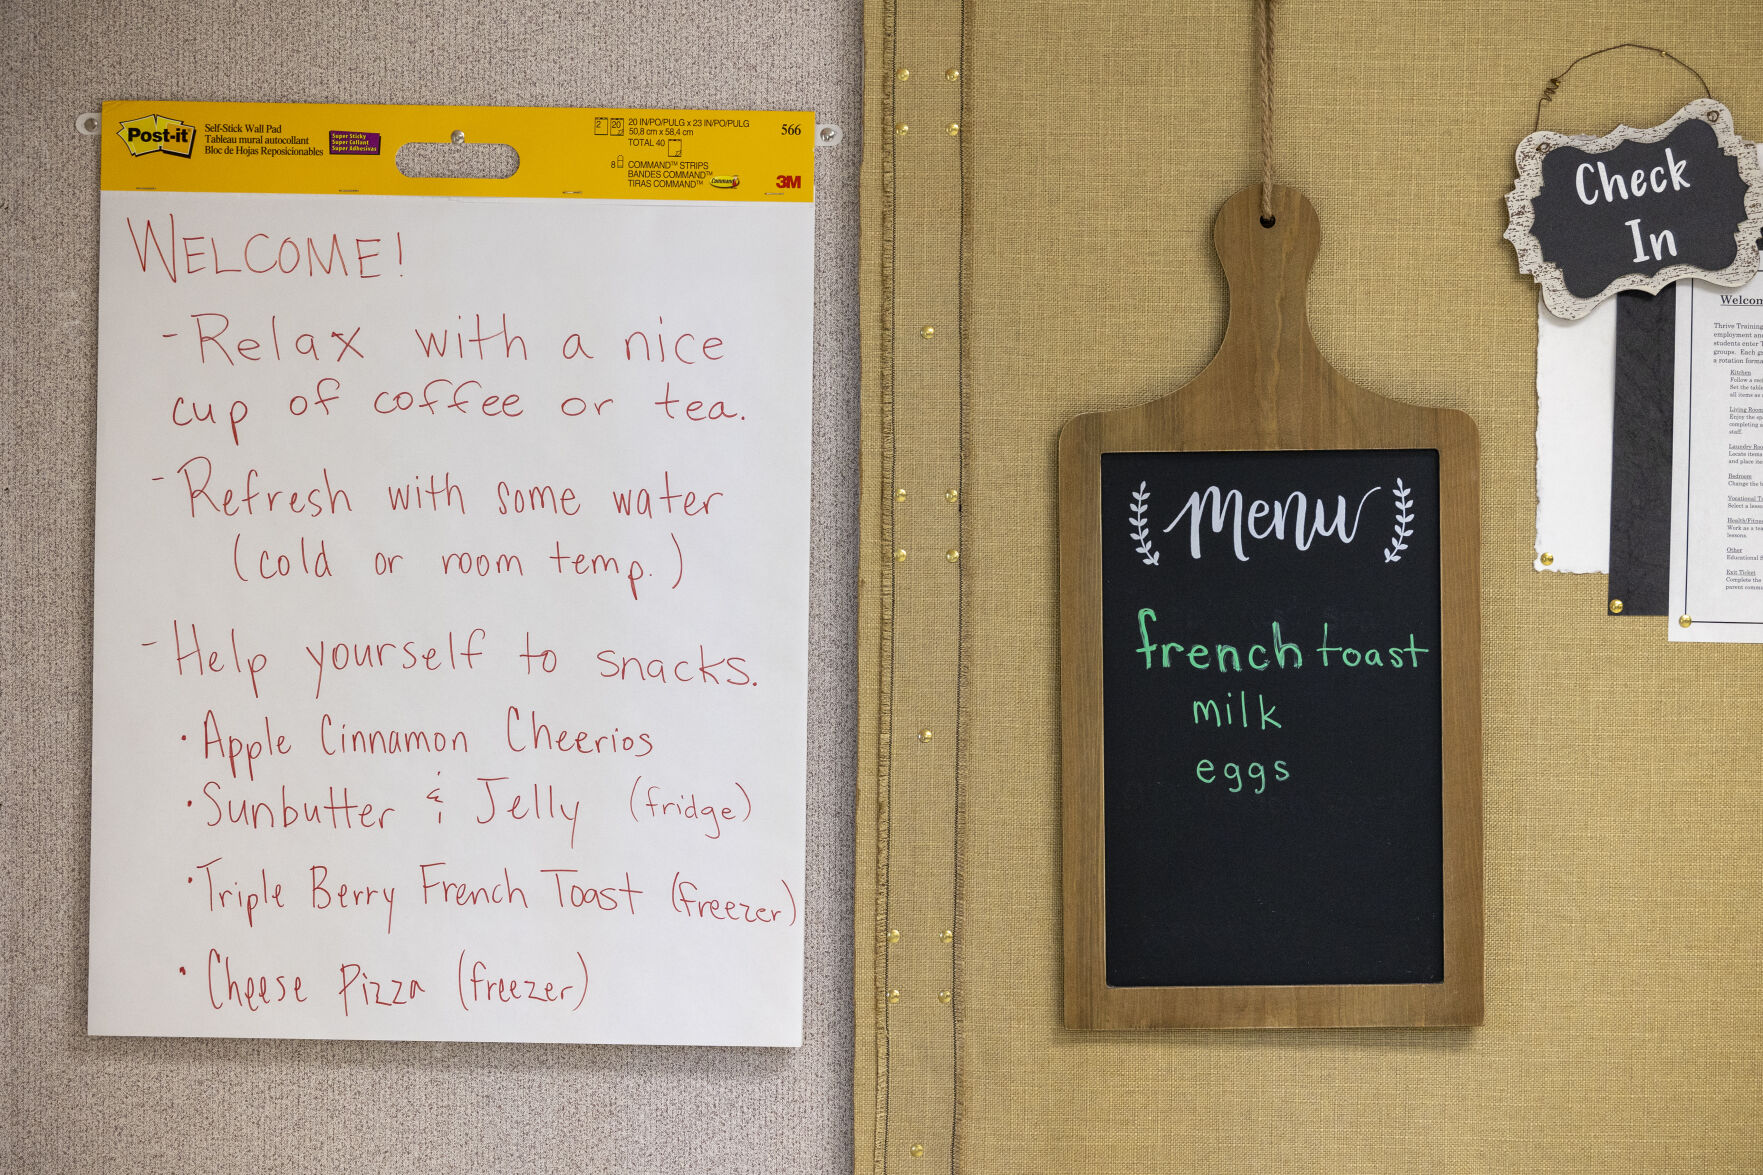 Post-it
Self-Stick Wall Pad
Tableau mural autocollant
Bloc de Hojas Reposicionables
Super Sticky
Super Collant
Super Adhesivas
2 20 20 IN/PO/PULG x 23 IN/PO/PULG
50,8 cm x 58,4 cm
TOTAL 40
8 COMMAND™ STRIPS
BANDES COMMAND™
TIRAS COMMAND™
Command
566
3M
WELCOME!
- Relax with a nice
cup of coffee or tea.
- Refresh with some water
(cold or room temp.)
- Help yourself to snacks.
• Apple Cinnamon Cheerios
• Sunbutter & Jelly (fridge)
• Triple Berry French Toast (freezer)
• Cheese Pizza (freezer)
menu
french toast
milk
eggs
Check
In
Welcom
Thrive Training
employment and
students enter
groups. Each
a rotation forma
Kitchen
Follow a
Set the table
all items as
Living Room
Enjoy the
completing
staff.
Laundry
Locate items
and place
Bedroom
Change the
Vocational
Select a
Health/Fitne
Work as a
lessons.
Other
Educational
Exit Ticket
Complete the
parent